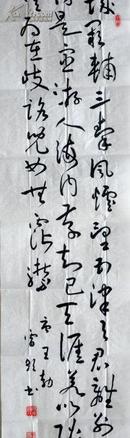 城闕輔三秦風煙望五津與君離別
意同是宦遊人海内存知己天涯若比
無為在歧路兒女共霑巾
王勃
書